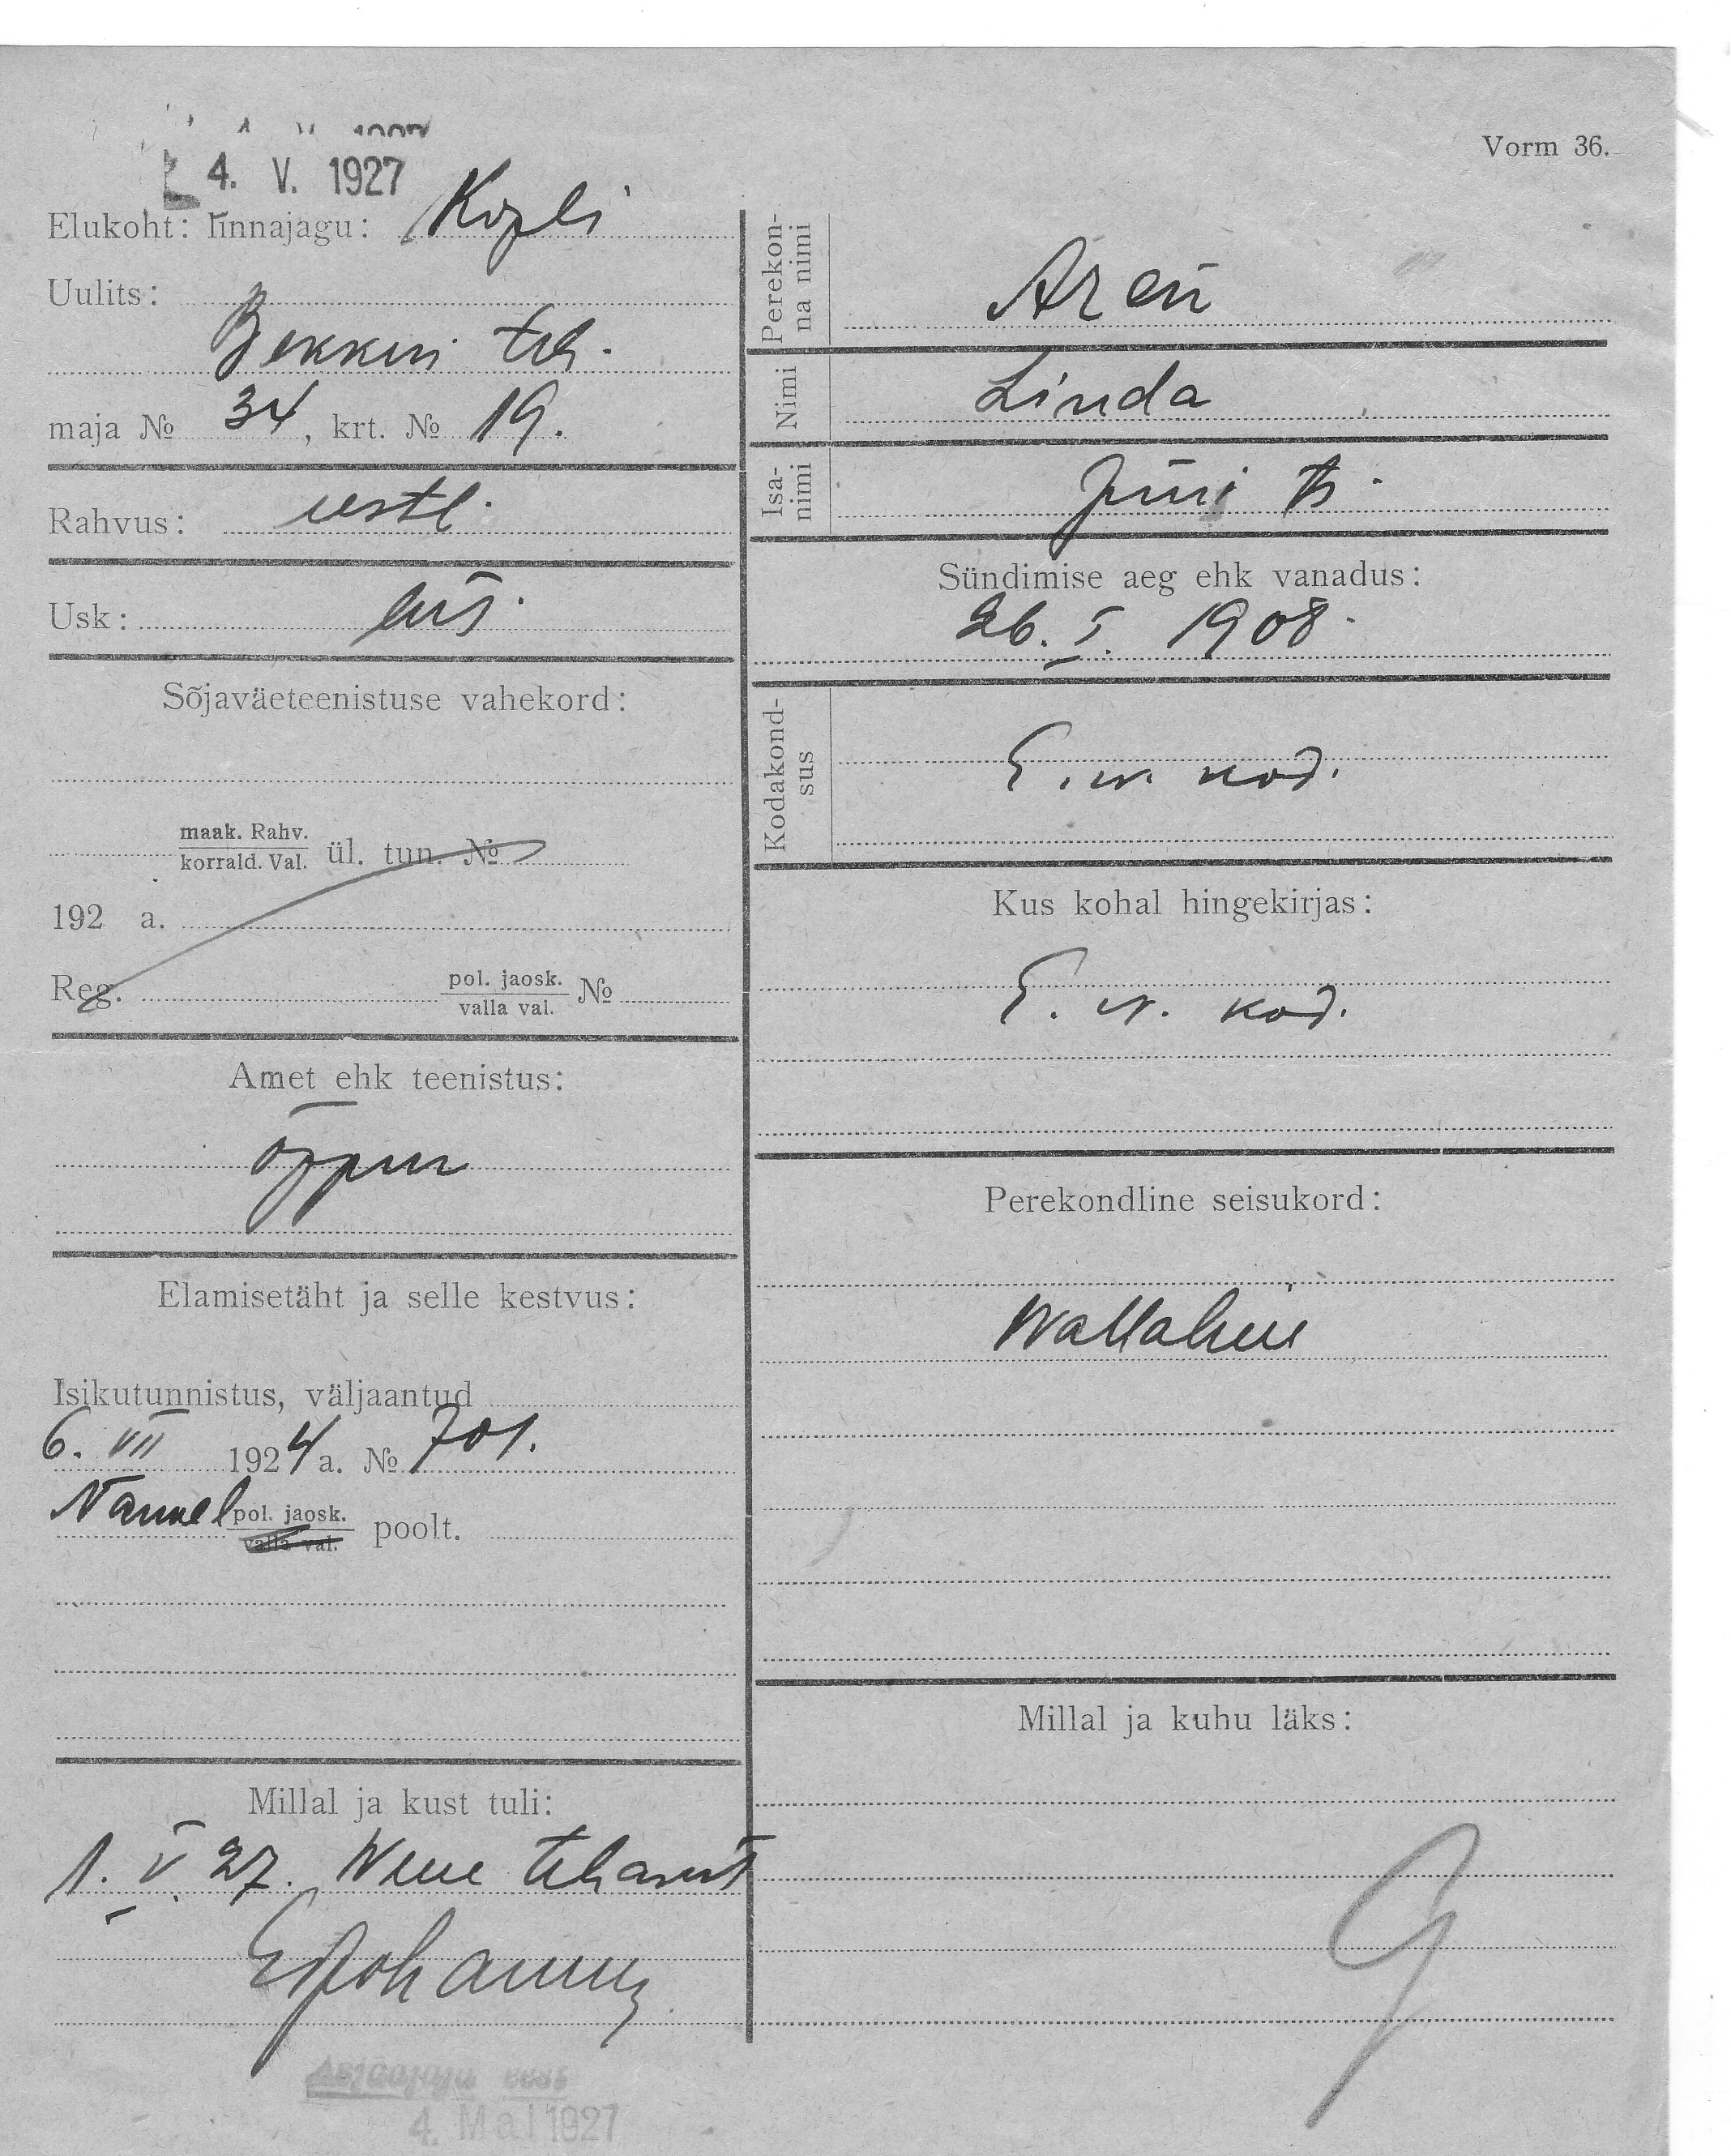 4. V. 1927
Vorm 36.
Elukoht: linnajagu: Kopli
Uulits:
Bekkeri teh.
maja № 34, krt. № 19.
Rahvus: eestl.
Usk: lut.
Sõjaväeteenistuse vahekord:
maak. Rahv.
korrald. Val. ül. tun. №
192 a.
Reg. pol. jaosk.
valla val. №
Amet ehk teenistus:
õppur
Elamisetäht ja selle kestvus:
Isikutunnistus, väljaantud
6. VII 1924 a. № 701.
pol. jaosk.
valla val. poolt.
Millal ja kust tuli:
1. V. 27. Wene tehasest
4. Mai 1927
Perekon-
na nimi
Aren
Nimi Linda
Isa-
nimi
Jüri tr.
Sündimise aeg ehk vanadus:
26. I. 1908.
Kodakond-
sus
E. w. kod.
Kus kohal hingekirjas:
E. w. kod.
Perekondline seisukord:
Wallaline
Millal ja kuhu läks: